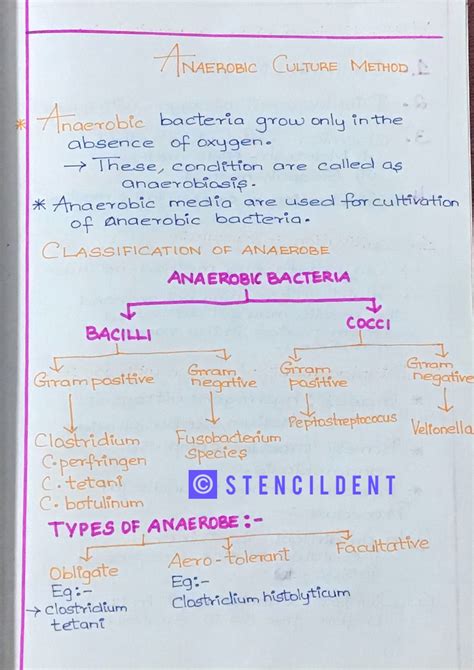 ANAEROBIC CULTURE METHOD
* Anaerobic bacteria grow only in the
absence of oxygen.
→ These, condition are called as
anaerobiasis.
* Anaerobic media are used for cultivation
of anaerobic bacteria.
CLASSIFICATION OF ANAEROBE
ANAEROBIC BACTERIA
BACILLI
COCCI
Gram positive
Gram negative
Gram positive
Gram negative
Clostridium
C. perfringen
C. tetani
C. botulinum
Fusobacterium
species
Peptostreptococcus
Vellonella
© STENCILDENT
TYPES OF ANAEROBE :-
Obligate
Eg:-
→ clostridium
tetani
Aero-tolerant
Eg:-
Clostridium histolyticum
Facultative